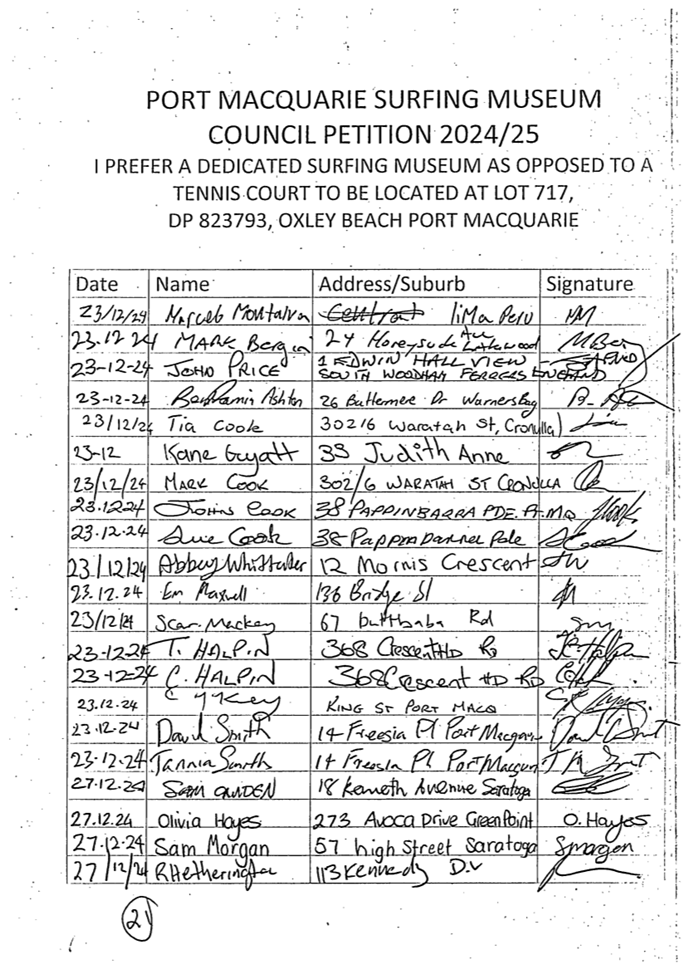 PORT MACQUARIE SURFING MUSEUM
COUNCIL PETITION 2024/25
I PREFER A DEDICATED SURFING MUSEUM AS OPPOSED TO A
TENNIS COURT TO BE LOCATED AT LOT 717,
DP 823793, OXLEY BEACH PORT MACQUARIE
Date Name Address/Suburb Signature
23/12/24 Central lima Peru
23.12.24 MARK 24 Lakewood
23-12-24 JOHN PRICE 1 EDWIN HALL VIEW SOUTH WOODHAM FERRERS ENGLAND
23-12-24 Benjamin Ashton 26 Buttermere Dr Warners Bay
23/12/24 Tia Cook 302/6 Waratah St, Cronulla
23-12 Kane Gyatt 33 Judith Anne
23/12/24 MARK COOK 302/6 WARATAH ST CRONULLA
23.12.24 JOHN COOK 38 PAPPINBARRA PDE. P.MQ
23.12.24 Sue Cook 38
23/12/24 Abbey Whittaker 12 Morris Crescent
23.12.24 Em Maxwell Bridge St
23/12/24 Mackey 67 Rd
23-12-24 T. HALPIN 368 Crescent HD R
23-12-24 C. HALPIN 368 Crescent HD RD
23.12.24 KING ST PORT MACQ
23.12.24 David Smith 14 Freesia Pl Port Macquarie
23.12.24 Tannia Smith 14 Freesia Pl Port Macquarie
27.12.24 SAM 18 Kenneth Avenue Saratoga
27.12.24 Olivia Hayes 273 Avoca Drive Green Point O. Hayes
27.12.24 Sam Morgan 57 high Street Saratoga Smorgan
27/12/24 R Hetherington 113 Kennedy D.V
21